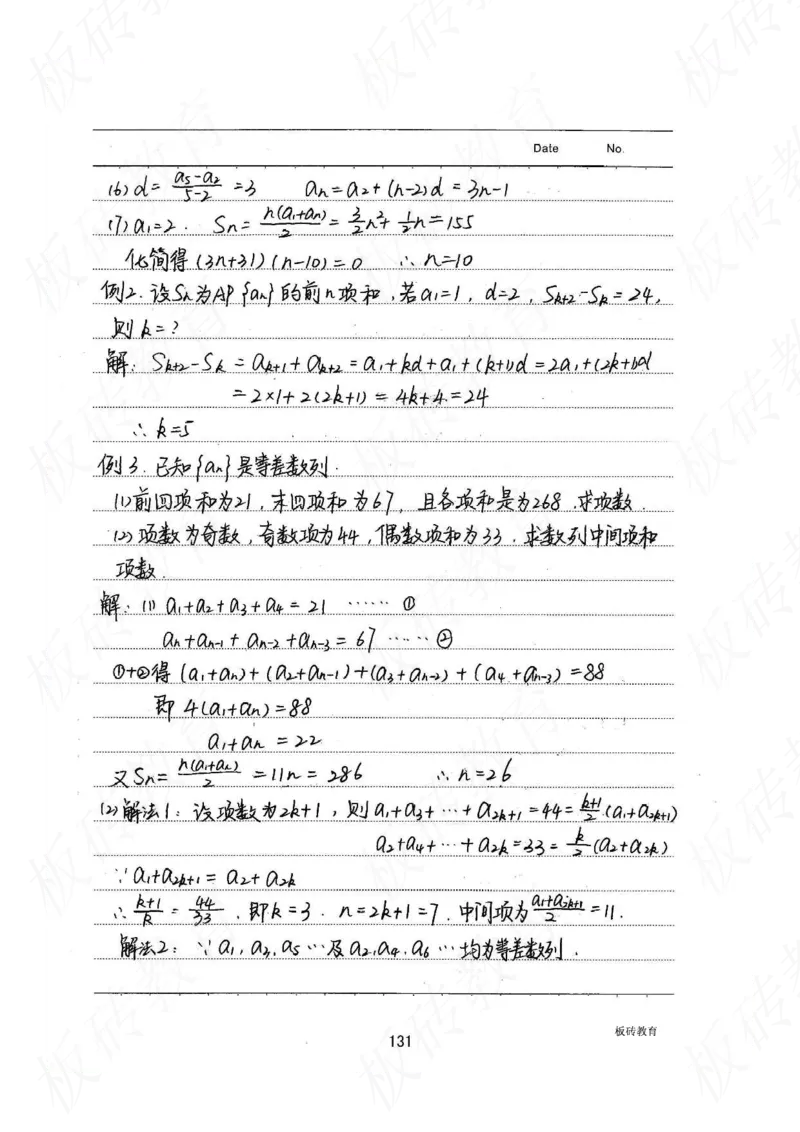 Date No.
(6) d = (a₅-a₂)/(5-2) = 3 aₙ = a₂ + (n-2)d = 3n-1
(7) a₁=2. Sₙ = n(a₁+aₙ)/2 = 3/2n² + 1/2n = 155
化简得 (3n+31)(n-10) = 0 ∴ n=10
例2. 设Sₙ为AP{aₙ}的前n项和,若a₁=1, d=2, Sₖ₊₂-Sₖ=24,
则k=?
解: Sₖ₊₂-Sₖ = aₖ₊₁+aₖ₊₂ = a₁+kd+a₁+(k+1)d = 2a₁+(2k+1)d
= 2×1+2(2k+1) = 4k+4 = 24
∴ k=5
例3. 已知{aₙ}是等差数列.
(1) 前四项和为21, 末四项和为67, 且各项和是为268, 求项数.
(2) 项数为奇数, 奇数项为44, 偶数项和为33. 求数列中间项和
项数.
解: (1) a₁+a₂+a₃+a₄ = 21 …… ①
aₙ+aₙ₋₁+aₙ₋₂+aₙ₋₃ = 67 …… ②
①+②得 (a₁+aₙ)+(a₂+aₙ₋₁)+(a₃+aₙ₋₂)+(a₄+aₙ₋₃) = 88
即 4(a₁+aₙ) = 88
a₁+aₙ = 22
又Sₙ = n(a₁+aₙ)/2 = 11n = 286 ∴ n=26
(2) 解法1: 设项数为2k+1, 则a₁+a₃+…+a₂ₖ₊₁ = 44 = (k+1)/2 (a₁+a₂ₖ₊₁)
a₂+a₄+…+a₂ₖ = 33 = k/2 (a₂+a₂ₖ)
∵ a₁+a₂ₖ₊₁ = a₂+a₂ₖ
∴ (k+1)/k = 44/33, 即k=3. n=2k+1=7. 中间项为 (a₁+a₂ₖ₊₁)/2 = 11.
解法2: ∵ a₁, a₃, a₅…及a₂, a₄, a₆…均为等差数列.
板砖教育
131